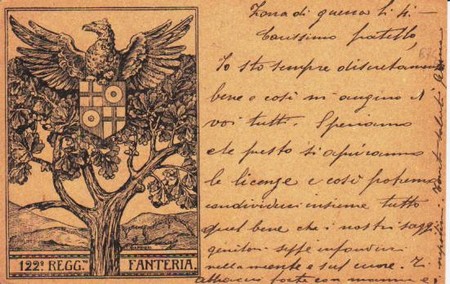 Zona di guerra li 6 -
Carissimo fratello,
Io sto sempre discretamente
bene e così mi auguro di
voi tutti. Speriamo
che presto si apriranno
le licenze e così potremo
condividerci insieme tutto
quel bene che i nostri saggi
genitori seppe infondere
nella mente e sul cuore. Ti
abbraccio forte con mamma e
122º REGG.TO FANTERIA